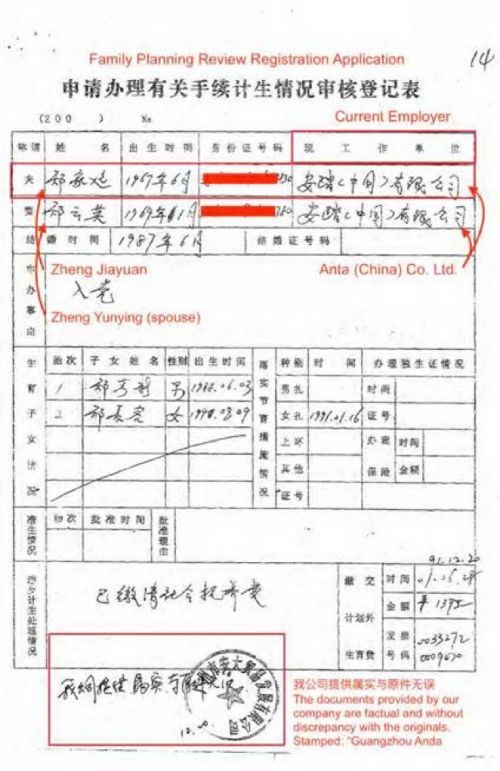 Family Planning Review Registration Application
14
申请办理有关手续计生情况审核登记表
Current Employer
(200 ) No
称谓 姓名 出生时间 身份证号码 现工作单位
夫 1967年6月 安踏(中国)有限公司
妻 郑云英 1969年11月 安踏(中国)有限公司
结婚时间 1987年6月 结婚证号码
Zheng Jiayuan
Anta (China) Co. Ltd.
申办事由
入党
Zheng Yunying (spouse)
生育子女情况 胎次 子女姓名 性别 出生时间 落实节育措施情况 种别 时间 办理独生证情况
1 男 1988.06.03 男扎 时间
2 女 1990.08.09 女扎 1991.01.16 证号
上环 办理 时间
其他 保险 金额
证号
准生情况 胎次 批准时间 批准理由
91.12.20
处理情况 已缴清社会抚养费 缴交 时间
计划外 金额 ¥1395
发票 0033272
生育费 号码 0009670
我公司提供属实与原件无误
The documents provided by our
company are factual and without
discrepancy with the originals.
Stamped: "Guangzhou Anda